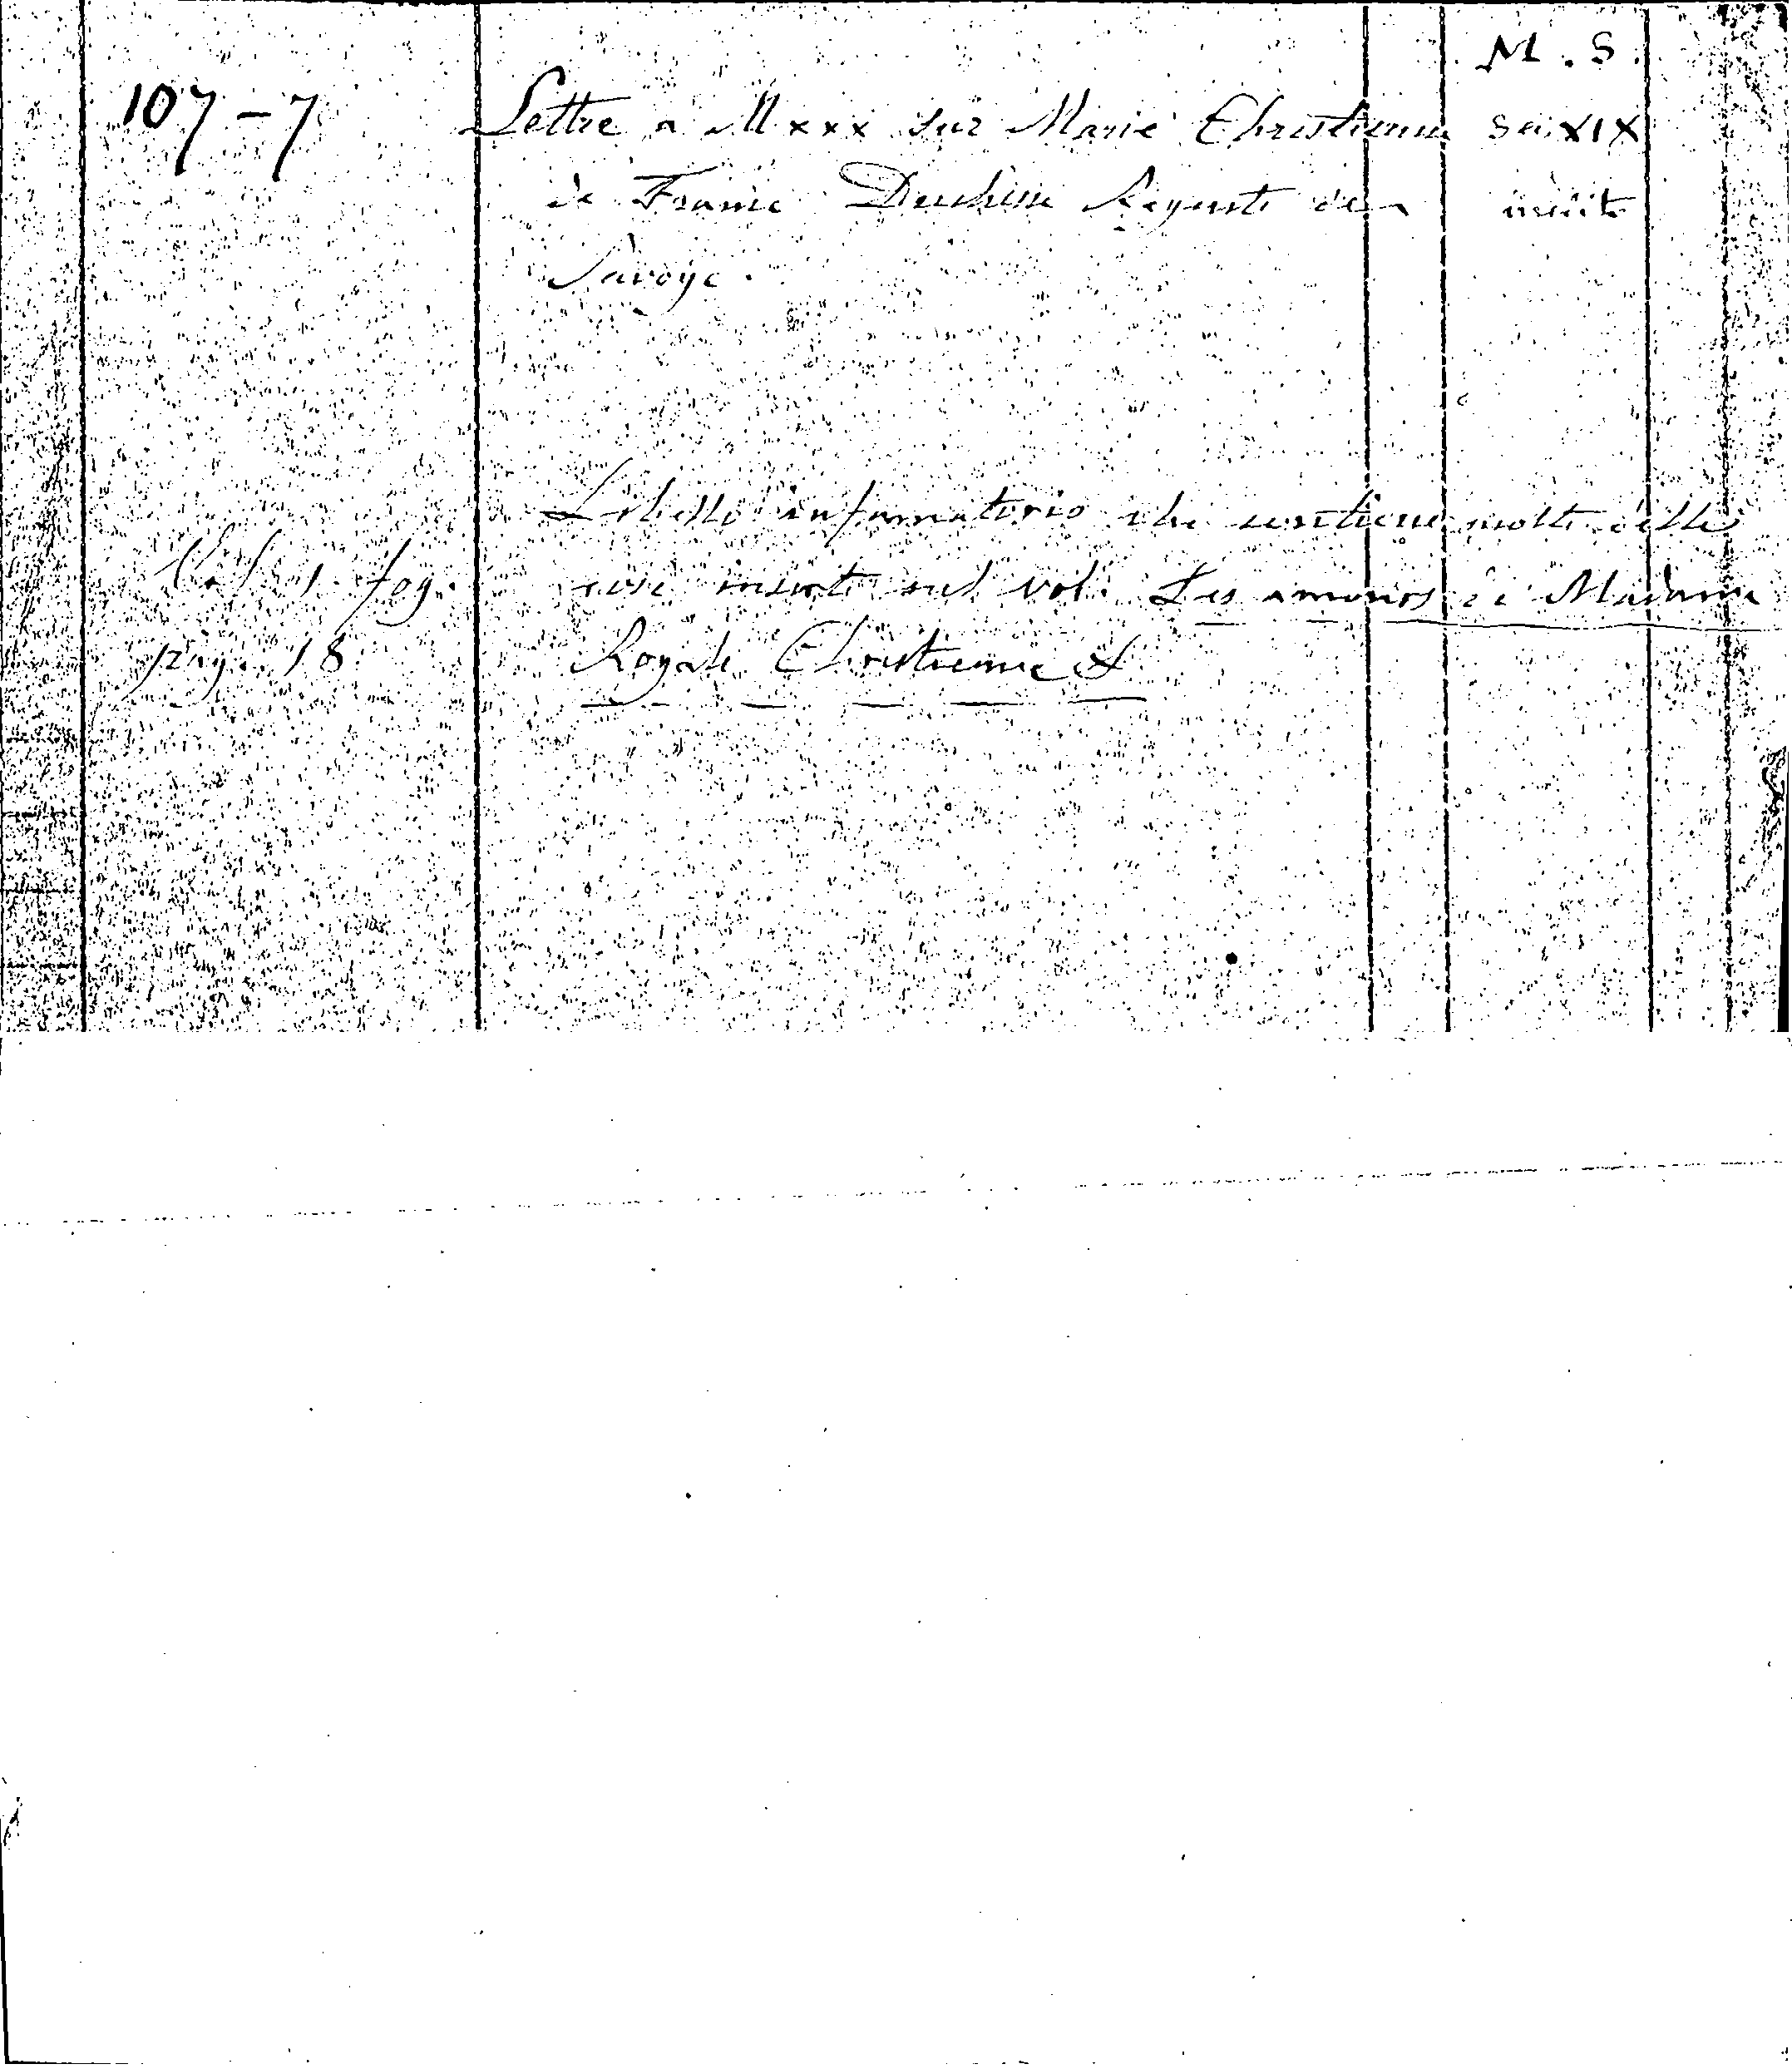 M. S.
107-7 Lettre a M xxx sur Marie Christienne Sec. XIX
de France Duchesse Regente de inedito
Savoye.
Libello infamatorio che contiene molte delle
Vol. 1. fog. cose inserte nel vol. Les amours de Madame
pag. 18 Royale Christienne &